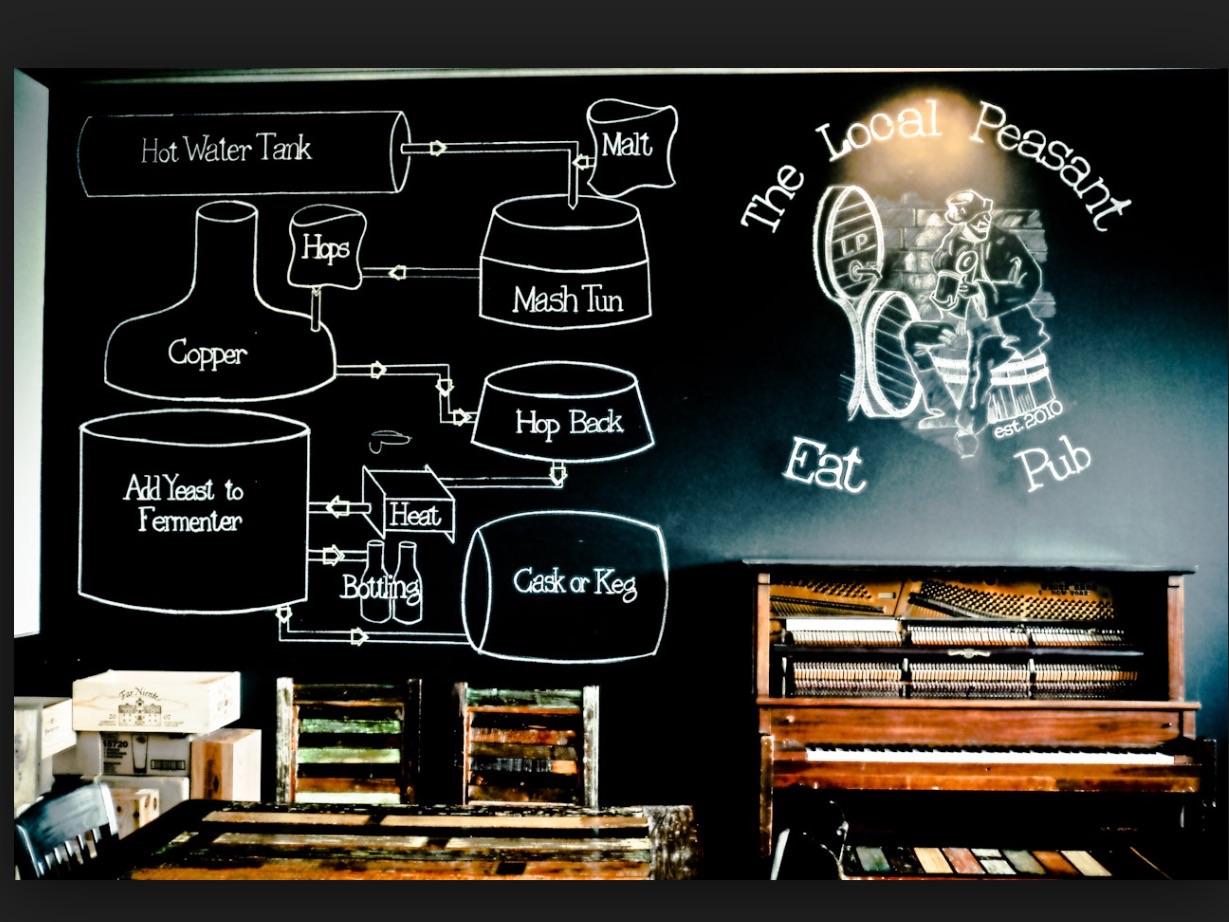 Hot Water Tank
Malt
Hops
Mash Tun
Copper
Hop Back
Add Yeast to
Fermenter
Heat
Bottling
Cask or Keg
The Local Peasant
LP
est. 2010
Eat
Pub
Far Niente
15720